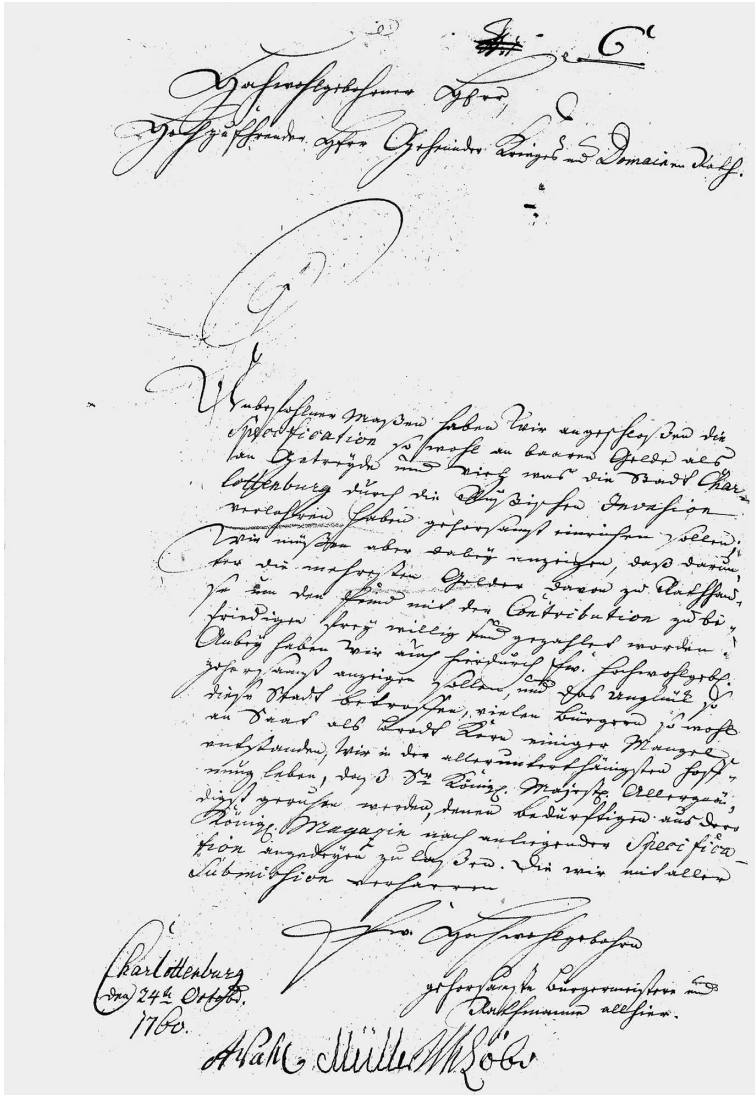 6
Hochwohlgebohrner Herr,
Hochzuehrender Herr Geheimder Krieges und Domainen Rath.
Anbefohlner Maßen haben Wir angeschloßen die
Specification so wohl an baaren Gelde als
an Getreyde und Vieh was die Stadt Char-
lottenburg durch die Rußischen Invasion
verlohren haben gehorsamst einreichen sollen,
Wir müßen aber dabey anzeigen, daß darun-
ter die mehresten Gelder davon zu Rathhau-
se um den Feind mit der Contribution zu be-
friedigen frey willig sind gezahlet worden.
Anbey haben Wir auch hierdurch Ew. Hochwohlgeb.
gehorsamst anzeigen sollen, und das Unglück so
diese Stadt betroffen, vielen Bürgern so wohl
an Saat als Brodt Korn einiger Mangel
entstanden, Wir in der allerunterthänigsten Hoff-
nung leben, daß Sr. Königl. Majest. Allergnä-
digst geruhen werden, denen bedürftigen aus dero
Königl. Magazin nach anliegender Specifica-
tion angedeyen zu laßen. Die wir mit aller
Submission verharren
Ew. Hochwohlgebohrn
gehorsamste Bürgermeistere und
Rathmanne allhier.
Charlottenburg
den 24ten Octobr.
1760.
Müller